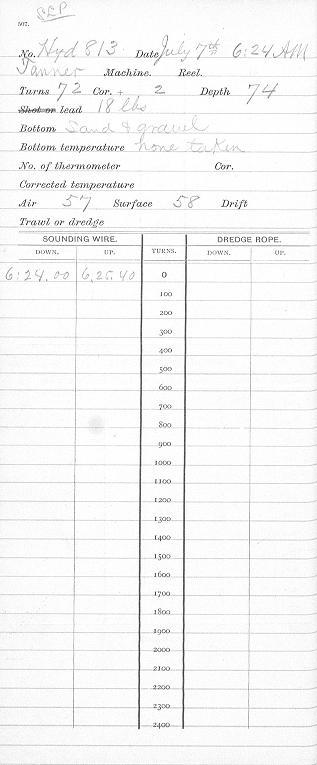 507.
No. Hyd 813 Date July 7th 6:24 AM
Tanner Machine. Reel.
Turns 72 Cor. + 2 Depth 74
Shot or lead 18 lbs
Bottom Sand & gravel
Bottom temperature none taken
No. of thermometer Cor.
Corrected temperature
Air 57 Surface 58 Drift
Trawl or dredge
SOUNDING WIRE. TURNS. DREDGE ROPE.
DOWN. UP. DOWN. UP.
6:24.00 6.25.40 0
100
200
300
400
500
600
700
800
900
1000
1100
1200
1300
1400
1500
1600
1700
1800
1900
2000
2100
2200
2300
2400